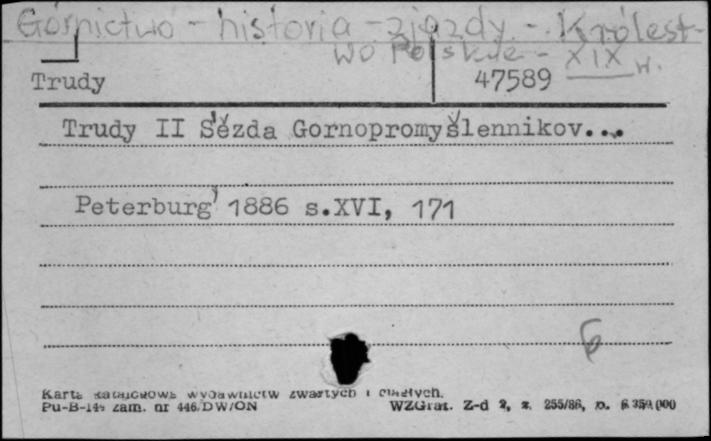 Górnictwo - historia - zjazdy - Królest-
wo Polskie - XIX w.
Trudy
47589
Trudy II S'ězda Gornopromyšlennikov...
Peterburg' 1886 s.XVI, 171
6
Karta katalogowa wydawnictw zwartych i ciągłych.
Pu-B-144 zam. nr 446/DW/ON
WZGraf. Z-d 2, z. 255/86, n. 6 350 000